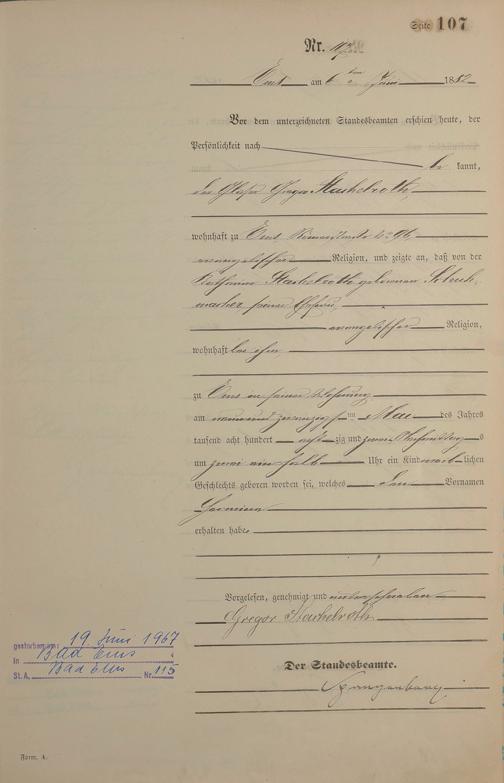 Seite 107
Nr.
Ems am 6 ten Juni 1882
Vor dem unterzeichneten Standesbeamten erschien heute, der
Persönlichkeit nach
be kannt,
der Glaser Gregor Stachelroth,
wohnhaft zu Ems Römerstraße No 96,
evangelischer Religion, und zeigte an, daß von der
Stachelroth geborenen Schuh-
macher seiner Ehefrau,
evangelischer Religion,
wohnhaft bei ihm
zu Ems in seiner Wohnung
am neunundzwanzigsten Mai des Jahres
tausend acht hundert acht zig und zwei Nachmittags
um zwei ein halb Uhr ein Kind weib lichen
Geschlechts geboren worden sei, welches den Vornamen
Hermine
erhalten habe.
Vorgelesen, genehmigt und unterschrieben
Gregor Stachelroth
Der Standesbeamte.
Spangenberg
gestorben am: 19. Juni 1967
in Bad Ems
St. A. Bad Ems Nr. 115
Form. A.